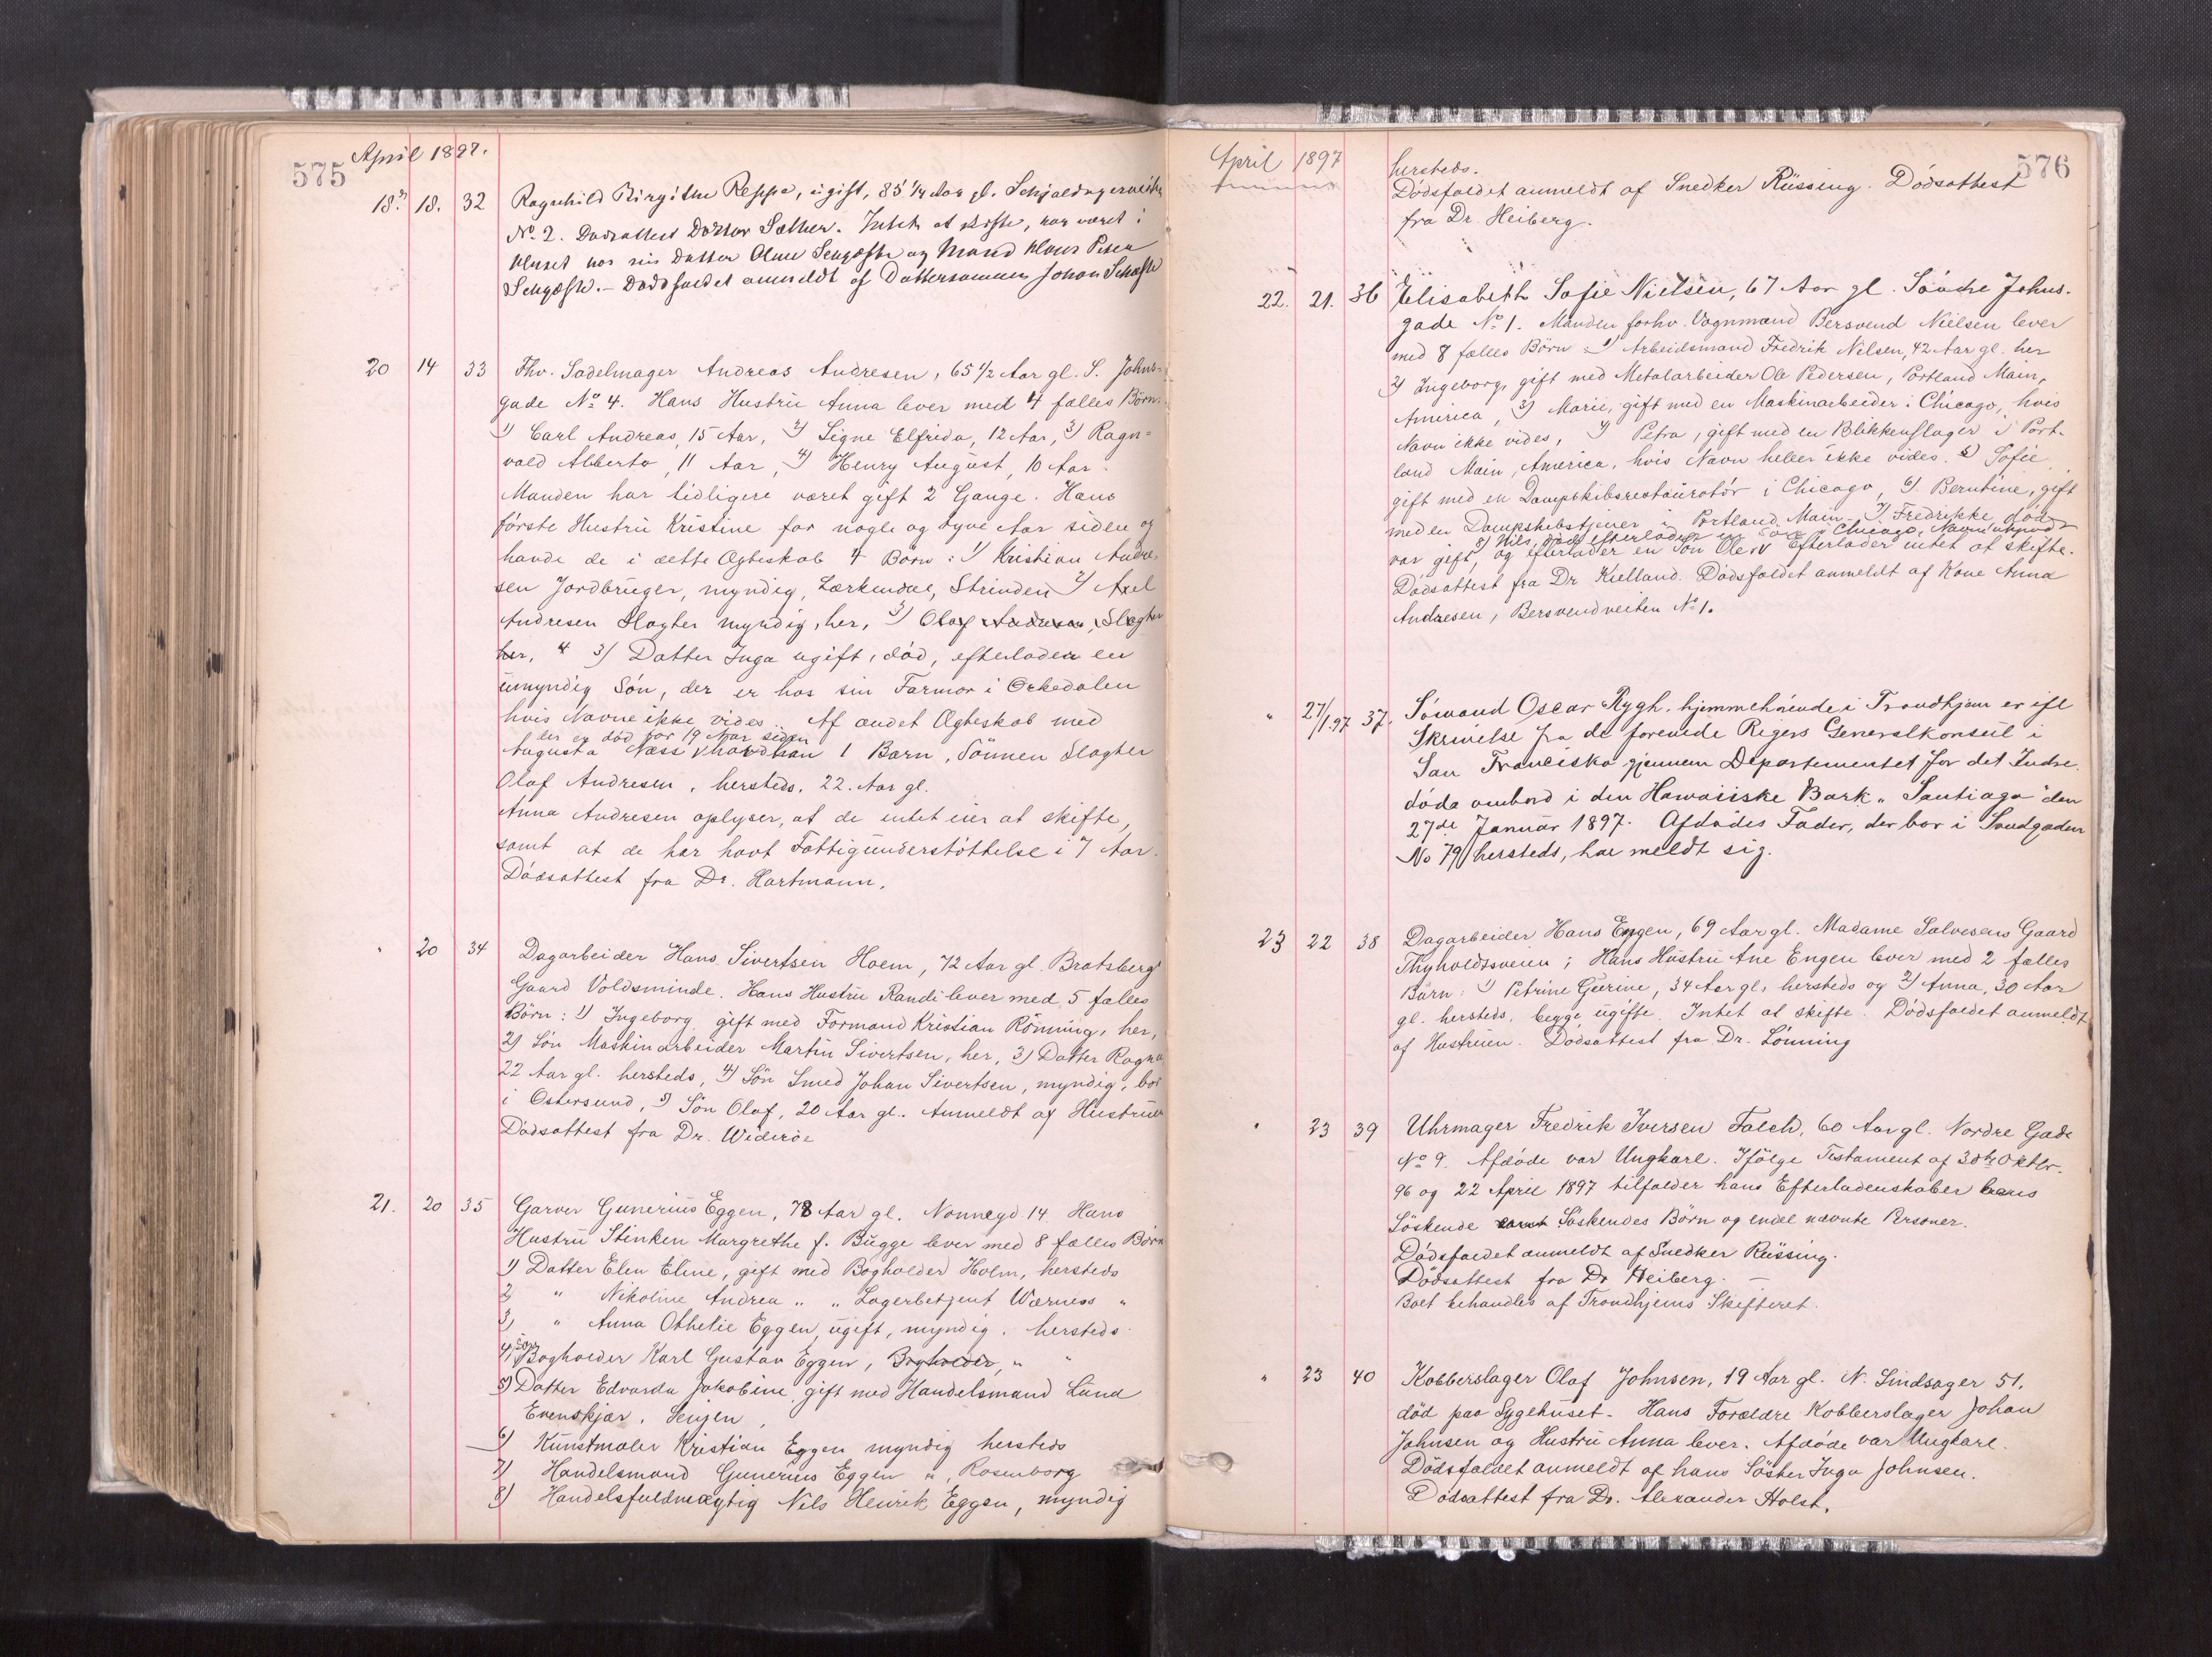 575
April 1897.
18. 18. 32 Ragnhild Birgithe Reppe, ugift, 85 1/4 Aar gl. Schjoldagerveiten
No 2. Dødsattest Doktor Sæther. Intet at skifte, har været i
Huset hos sin Datter Oline Schjefte og Mand Klaus Peter
Schjefte. – Dødsfaldet anmeldt af Dattersønnen Johan Schjefte
20 14 33 Fhv. Sadelmager Andreas Andresen, 65 1/2 Aar gl. S. Johns-
gade No 4. Hans Hustru Anna lever med 4 fælles Børn:
1) Carl Andreas, 15 Aar, 2) Signe Elfrida, 12 Aar, 3) Ragn=
vald Alberto, 11 Aar, 4) Henry August, 10 Aar.
Manden har tidligere været gift 2 Gange. Hans
første Hustru Kristine for nogle og tyve Aar siden og
havde de i dette Ægteskab 4 Børn: 1) Kristian Andre-
sen Jordbruger, myndig, Lerkendal, Strinden 2) Axel
Andresen Slagter myndig, her, 3) Olaf Andresen, Slagter
her, 4 3) Datter Inga ugift, død, efterlader en
umyndig Søn, der er hos sin Farmor i Orkedalen
hvis Navne ikke vides. Af andet Ægteskab med
der er død for 19 Aar siden
Augusta Næss havde han 1 Barn, Sønnen Slagter
Olaf Andresen, hersteds, 22. Aar gl.
Anna Andresen oplyser, at de intet eier at skifte,
samt at de har havt Fattigunderstøttelse i 7 Aar.
Dødsattest fra Dr. Hartmann.
" 20 34 Dagarbeider Hans Sivertsen Hoem, 72 Aar gl. Bratsberg
Gaard Voldsminde. Hans Hustru Randi lever med 5 fælles
Børn: 1) Ingeborg gift med Formand Kristian Rönning, her,
2) Søn Maskinarbeider Martin Sivertsen, her, 3) Datter Ragna
22 Aar gl. hersteds, 4) Søn Smed Johan Sivertsen, myndig, bor
i Østersund, 5) Søn Olaf, 20 Aar gl. Anmeldt af Hustruen
Dødsattest fra Dr. Widerøe
21. 20 35 Garver Gunerius Eggen, 78 Aar gl. Nonnegd. 14. Hans
Hustru Stinken Margrethe f. Bugge lever med 8 fælles Børn
1) Datter Elen Eline, gift med Bogholder Holm, hersteds
2) " Nikoline Andrea " " Lagerbetjent Wærness "
3) " Anna Othelie Eggen, ugift, myndig, hersteds
4) Søn Bogholder Karl Gustav Eggen, Bogholder, " "
5) Datter Edvarda Jakobine gift med Handelsmand Lund
Evenskjær, Senjen,
6) Kunstmaler Kristian Eggen myndig hersteds
7) Handelsmand Gunerius Eggen ", Rosenborg
8) Handelsfuldmægtig Nils Henrik Eggen, myndig
576
April 1897
hersteds.
Dødsfaldet anmeldt af Snedker Rüssing. Dødsattest
fra Dr. Heiberg.
22. 21. 36 Elisabeth Sofie Nielsen, 67 Aar gl. Søndre Johns.
gade No 1. Manden forhv. Vognmand Bersvend Nielsen lever
med 8 fælles Børn: 1) Arbeidsmand Fredrik Nilsen, 42 Aar gl. her
2) Ingeborg, gift med Metalarbeider Ole Pedersen, Portland Main,
America, 3) Marie, gift med en Maskinarbeider i Chicago, hvis
Navn ikke vides, 4) Petra, gift med en Blikkenslager i Port-
land Main, America, hvis Navn heller ikke vides. 5) Sofie
gift med en Dampskibsrestauratør i Chicago, 6) Berntine, gift
med en Dampskibstjener i Portland Main 7) Fredrikke død
8) Nils, død efterlader en Søn i Chicago, Navn
var gift, og efterlader en Søn Oler Efterlader intet at skifte.
Dødsattest fra Dr Kielland. Dødsfaldet anmeldt af Kone Anna
Andresen, Bersvendveiten No 1.
" 27/1.97 37. Sømand Oscar Rygh. hjemmehørende i Trondhjem er ifl
Skrivelse fra de forenede Rigers Generalkonsul i
San Francisko gjennem Departementet for det Indre
døde ombord i den Hawaiiske Bark "Santiago" den
27de Januar 1897. Afdødes Fader, der bor i Sandgaden
No 79 hersteds, har meldt sig.
23 22 38 Dagarbeider Hans Engen, 69 Aar gl. Madame Salvesens Gaard
Thyholdtsveien; Hans Hustru Ane Engen lever med 2 fælles
Børn: 1) Petrine Gurine, 34 Aar gl, hersteds og 2) Anna, 30 Aar
gl. hersteds, begge ugifte. Intet at skifte. Dødsfaldet anmeldt
af Hustruen. Dødsattest fra Dr. Lønning
" 23 39 Uhrmager Fredrik Iversen Falch, 60 Aar gl. Nordre Gade
No 9. Afdøde var Ungkarl. Ifølge Testament af 30te Oktbr.
96 og 22 April 1897 tilfalder hans Efterladenskaber hans
Söskende samt Söskendes Börn og endel nævnte Personer.
Dødsfaldet anmeldt af Snedker Rüssing.
Dødsattest fra Dr Heiberg. –
Boet behandles af Trondhjems Skifteret.
" 23 40 Kobberslager Olaf Johnsen, 19 Aar gl. N. Sindsager 51.
død paa Sygehuset. Hans Forældre Kobberslager Johan
Johnsen og Hustru Anna lever. Afdøde var Ungkarl.
Dødsfaldet anmeldt af hans Söster Inga Johnsen.
Dødsattest fra Dr. Alexander Holst.